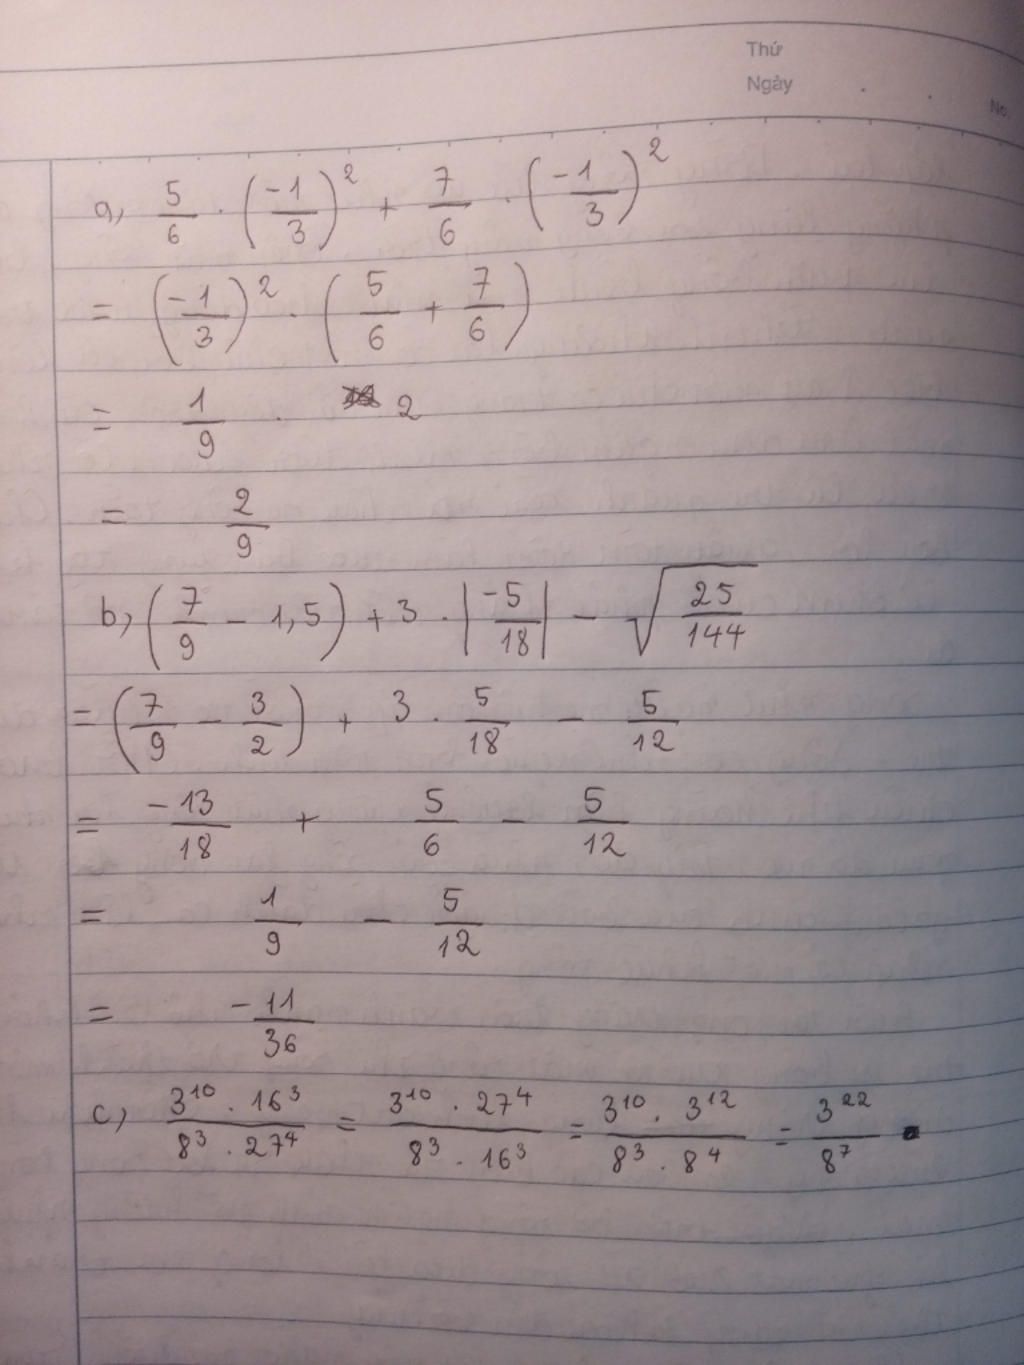 Thứ
Ngày . .
No.
a, 5/6 . (-1/3)² + 7/6 . (-1/3)²
= (-1/3)² . (5/6 + 7/6)
= 1/9 . 2
= 2/9
b, (7/9 - 1,5) + 3 . |-5/18| - √(25/144)
= (7/9 - 3/2) + 3 . 5/18 - 5/12
= -13/18 + 5/6 - 5/12
= 1/9 - 5/12
= -11/36
c, (3¹⁰ . 16³)/(8³ . 27⁴) = (3¹⁰ . 27⁴)/(8³ . 16³) = (3¹⁰ . 3¹²)/(8³ . 8⁴) = 3²²/8⁷